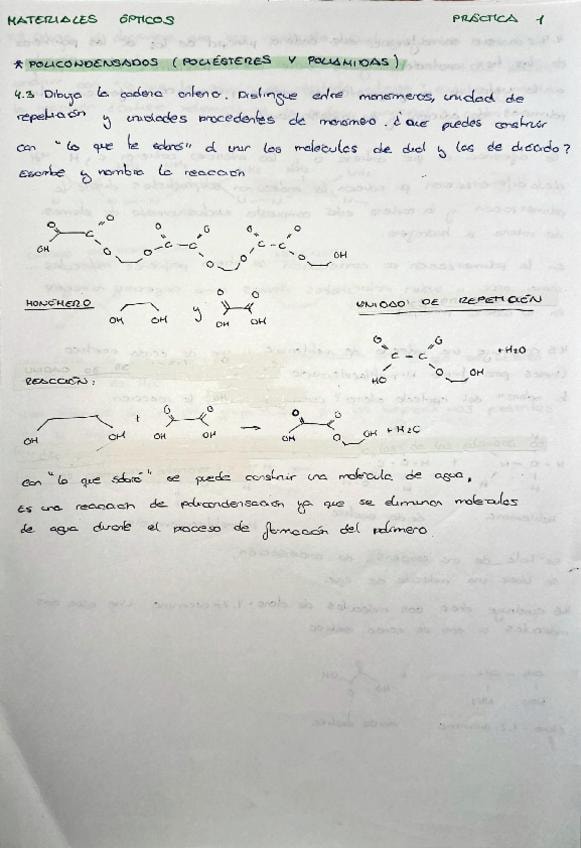 MATERIALES ÓPTICOS PRÁCTICA 1
* POLICONDENSADOS (POLIÉSTERES Y POLIAMIDAS)
4.3 Dibuja la cadena Distingue entre monómeros, unidad de
repetición y unidades procedentes de monómero. ¿Qué puedes construir
con "lo que te sobró" al unir las moléculas de diol y las de diácido?
Escribe y nombra la reacción
O O O O O O
C O O C - C O O C - C O OH
OH
MONÓMERO OH OH y O O OH OH
UNIDAD DE REPETICIÓN
O O C - C HO O OH + H2O
REACCIÓN:
OH OH + O O OH OH → O O OH O OH + H2O
con "lo que sobró" se puede construir una molécula de agua,
Es una reacción de policondensación ya que se eliminan moléculas
de agua durante el proceso de formación del polímero.